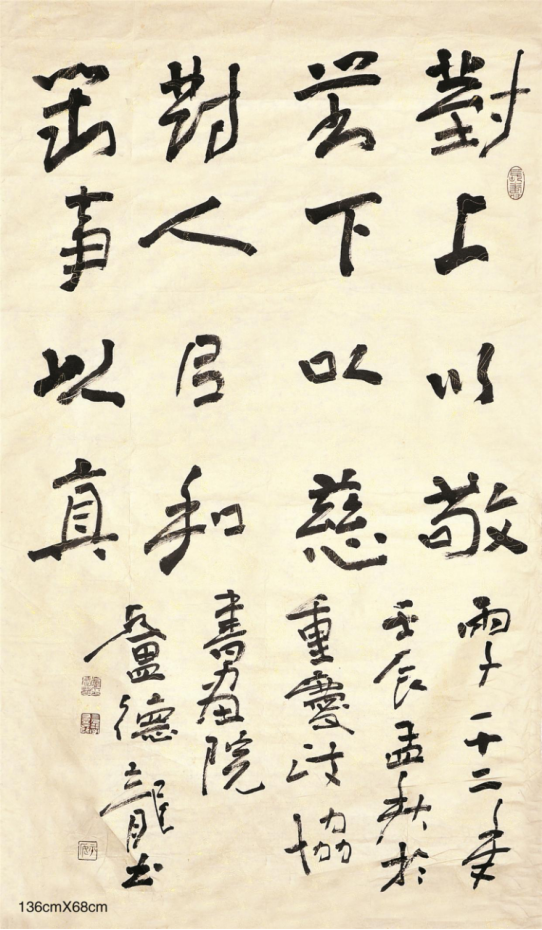 對上以敬
對下以慈
對人以和
對事以真
兩千一十二年
壬辰孟秋於
重慶政協
書画院
盧德龍书
136cmX68cm